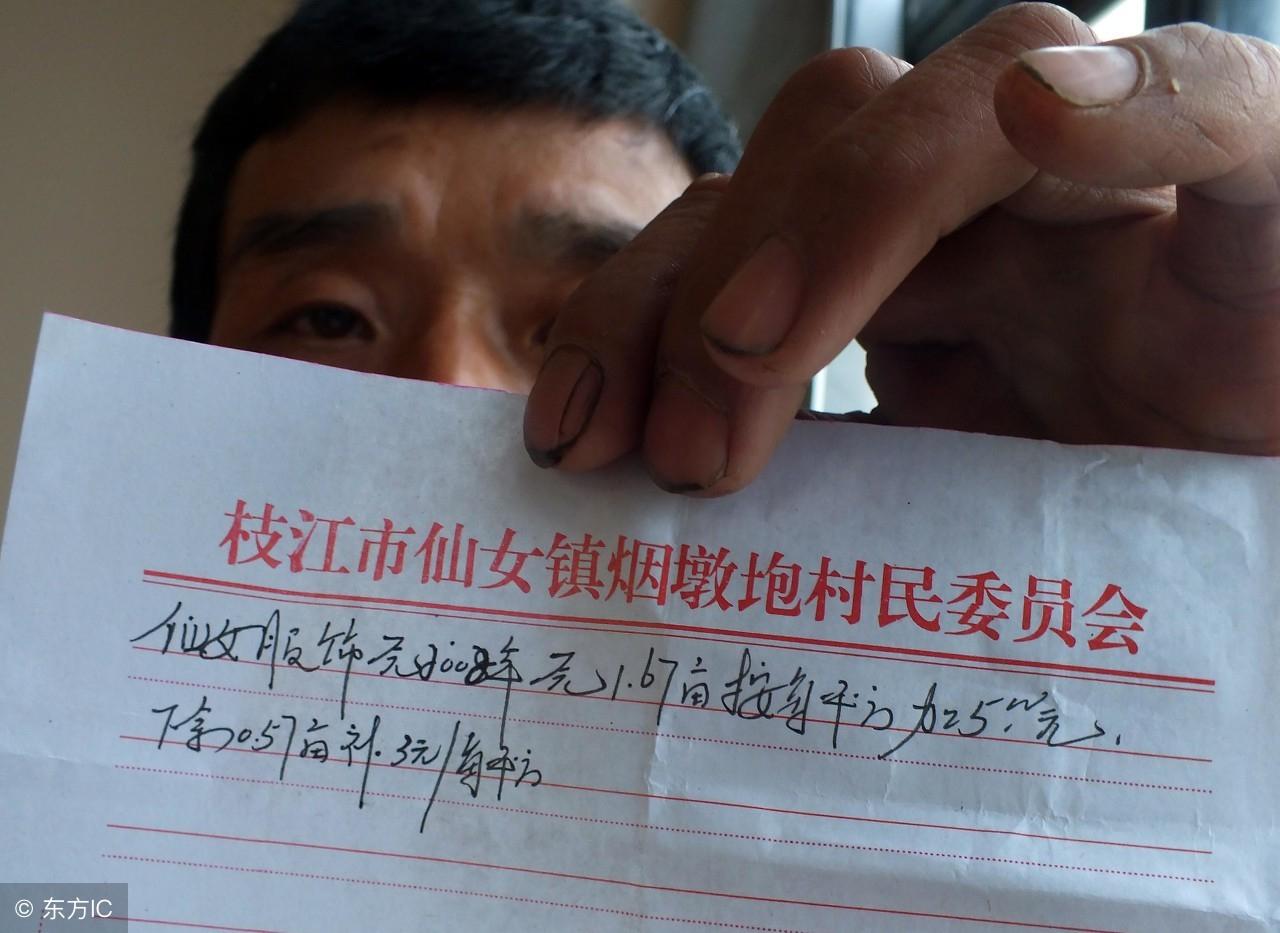 枝江市仙女镇烟墩垉村民委员会
仙女服饰元2008年元1.67亩按每平方为25.00元、
下余0.57亩补.3元/每平方
© 东方IC